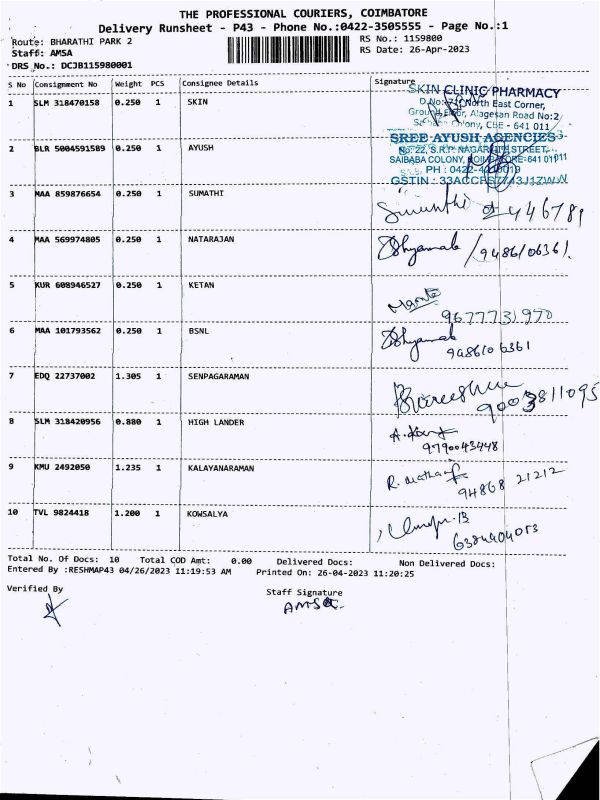 THE PROFESSIONAL COURIERS, COIMBATORE
Delivery Runsheet - P43 - Phone No.:0422-3505555 - Page No.:1
Route: BHARATHI PARK 2
RS No.: 1159800
Staff: AMSA
RS Date: 26-Apr-2023
DRS No.: DCJB115980001
S No Consignment No Weight PCS Consignee Details Signature
1 SLM 318470158 0.250 1 SKIN
SKIN CLINIC PHARMACY
North East Corner,
Alagesan Road No:2
CBE - 641 011
2 BLR 5004591589 0.250 1 AYUSH
SREE AYUSH AGENCIES
No:22, S.R.P. NAGAR STREET,
SAIBABA COLONY, COIMBATORE-641 011
PH : 0422-
GSTIN : 33ACCFS7743J1ZW
3 MAA 859876654 0.250 1 SUMATHI
Sumathi
4 MAA 569974805 0.250 1 NATARAJAN
Shyamala / 9486106361.
5 KUR 608946527 0.250 1 KETAN
9677731970
6 MAA 101793562 0.250 1 BSNL
Shyamala
9486106361
7 EDQ 22737002 1.305 1 SENPAGARAMAN
9003811095
8 SLM 318420956 0.880 1 HIGH LANDER
9790043448
9 KMU 2492050 1.235 1 KALAYANARAMAN
94868 21212
10 TVL 9824418 1.200 1 KOWSALYA
6384904013
Total No. Of Docs: 10 Total COD Amt: 0.00 Delivered Docs: Non Delivered Docs:
Entered By :RESHMAP43 04/26/2023 11:19:53 AM Printed On: 26-04-2023 11:20:25
Verified By
Staff Signature
AMSA